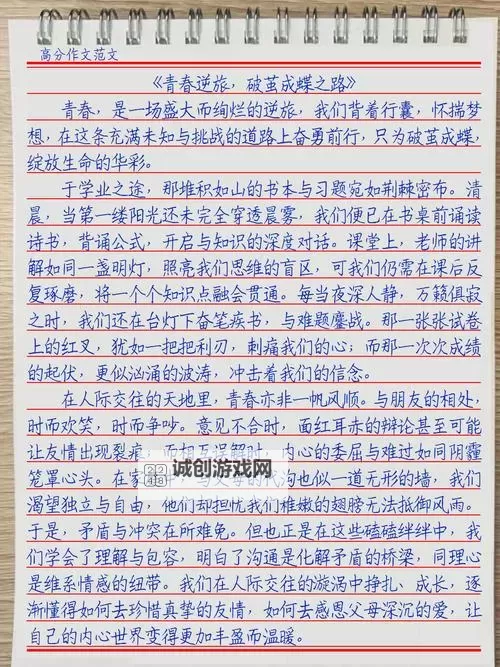 高分作文范文
《青春逆旅，破茧成蝶之路》
青春，是一场盛大而绚烂的逆旅，我们背着行囊，怀揣梦
想，在这条充满未知与挑战的道路上奋勇前行，只为破茧成蝶，
绽放生命的华彩。
于学业之途，那堆积如山的书本与习题宛如荆棘密布。清
晨，当第一缕阳光还未完全穿透晨雾，我们便已在书桌前诵读
诗书，背诵公式，开启与知识的深度对话。课堂上，老师的讲
解如同一盏明灯，照亮我们思维的盲区，可我们仍需在课后反
复琢磨，将一个个知识点融会贯通。每当夜深人静，万籁俱寂
之时，我们还在台灯下奋笔疾书，与难题鏖战。那一张张试卷
上的红叉，犹如一把把利刃，刺痛我们的心；而那一次次成绩
的起伏，更似汹涌的波涛，冲击着我们的信念。
在人际交往的天地里，青春亦非一帆风顺。与朋友的相处，
时而欢笑，时而争吵。意见不合时，面红耳赤的辩论甚至可能
让友情出现裂痕，而相互误解时，内心的委屈与难过如同阴霾
笼罩心头。在家 与父母的代沟也似一道无形的墙，我们
诚创游戏网
渴望独立与自由，他们却担忧我们稚嫩的翅膀无法抵御风雨。
于是，矛盾与冲突在所难免。但也正是在这些磕磕绊绊中，我
们学会了理解与包容，明白了沟通是化解矛盾的桥梁，同理心
是维系情感的纽带。我们在人际交往的漩涡中挣扎、成长，逐
渐懂得如何去珍惜真挚的友情，如何去感恩父母深沉的爱，让
自己的内心世界变得更加丰盈而温暖。